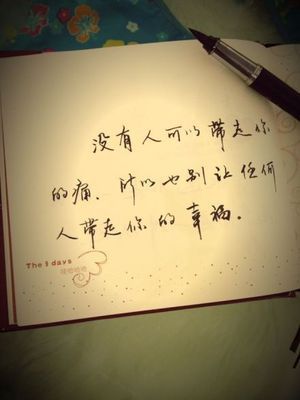 没有人可以带走你
的痛、所以也别让任何
人带走你的幸福。
The 3 days